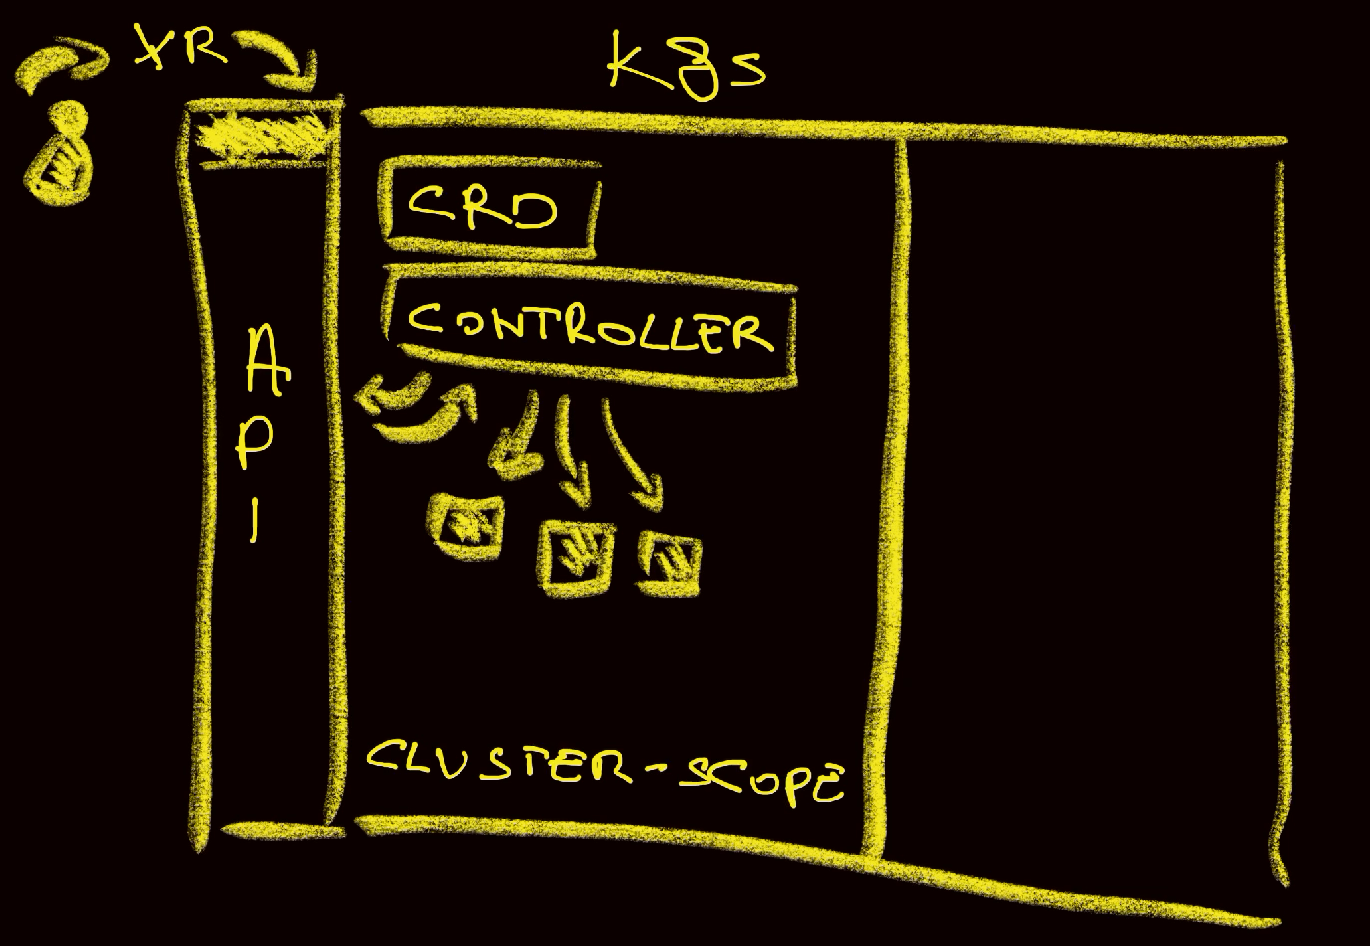 XR
k8s
CRD
CONTROLLER
API
CLUSTER-SCOPE